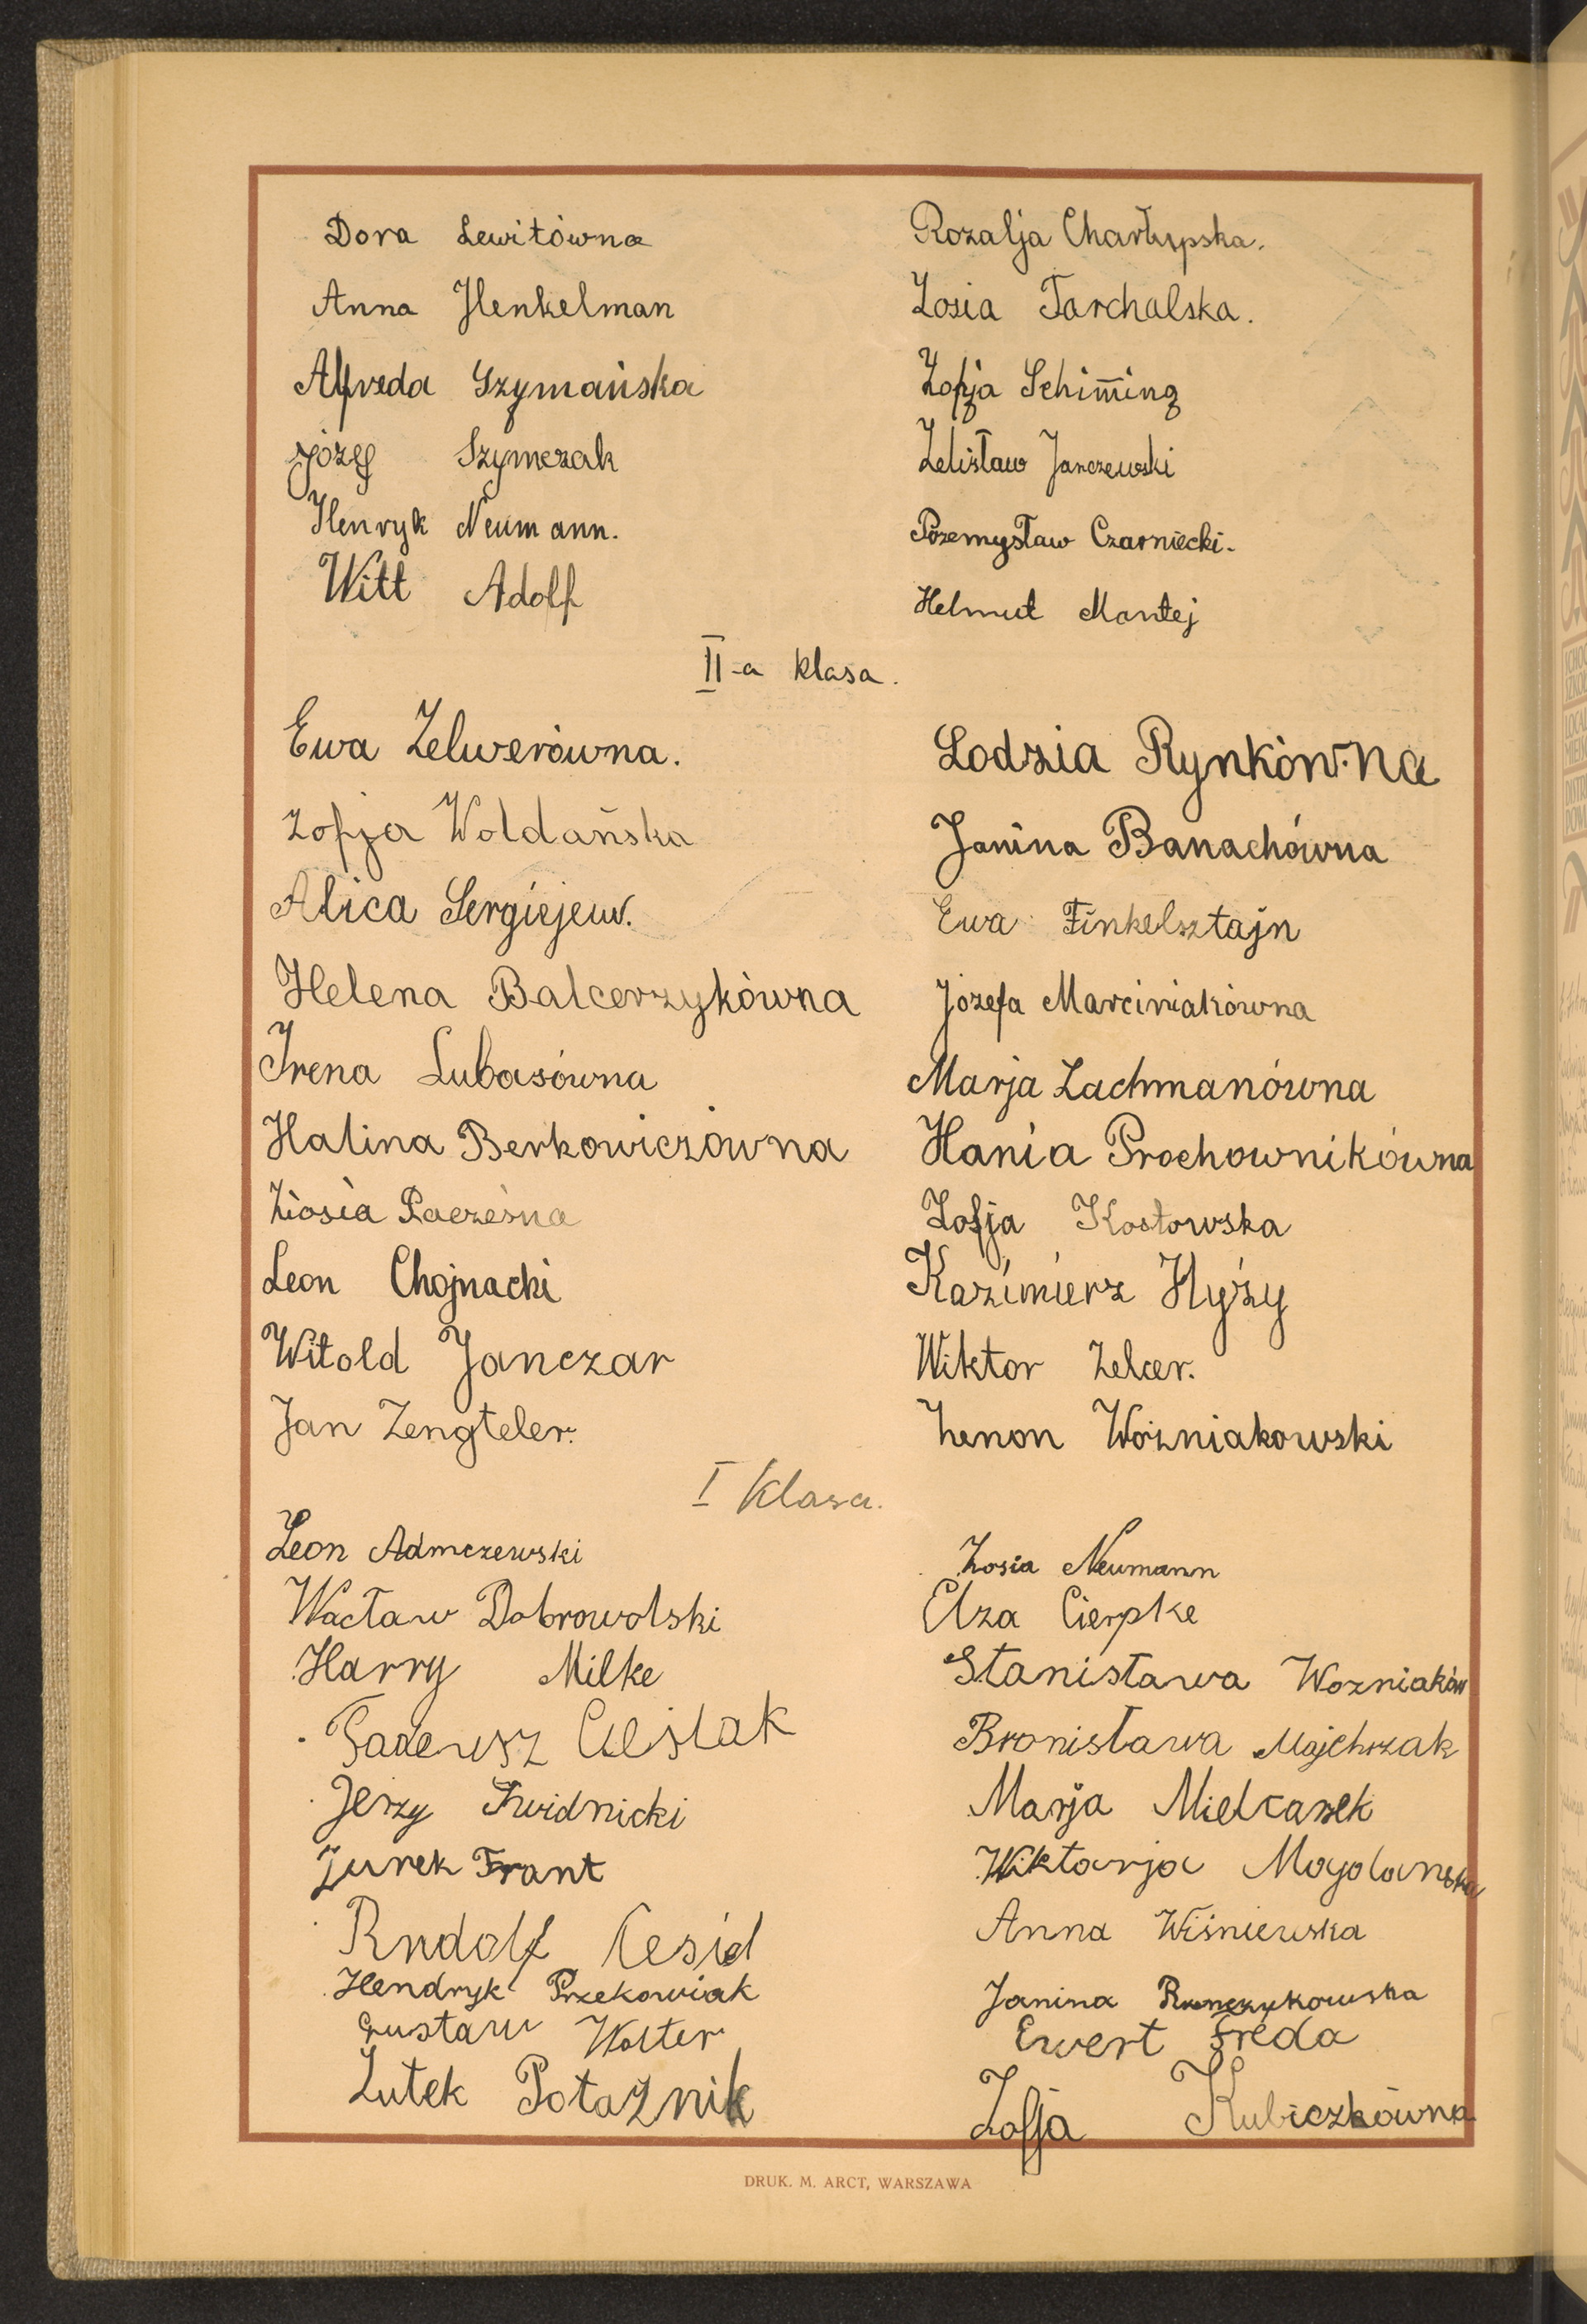 Dora Lewitówna
Anna Henkelman
Alfreda Szymańska
Józef Szymczak
Henryk Neumann.
Witt Adolf
Rozalja Charłupska.
Zosia Tarchalska.
Zofja Schim̅ing
Zelisław Janczewski
Przemysław Czarniecki.
Helmut Mantej
II-a klasa.
Ewa Zelwerówna.
Zofja Woldańska
Alica Sergiejew.
Helena Balcerzykówna
Irena Lubasówna
Halina Berkowiczówna
Ziosia Paczesna
Leon Chojnacki
Witold Janczar
Jan Zengteler.
Lodzia Rynkówna
Janina Banachówna
Ewa Finkelsztajn
Józefa Marciniakówna
Marja Lachmanówna
Hania Prochownikówna
Zofja Kostowska
Kazimierz Hyży
Wiktor Zelcer.
Zenon Woźniakowski
I klasa.
Leon Admczewski
Wacław Dobrowolski
Harry Milke
Tadeusz Cieślak
Jerzy Świdnicki
Jurek Frant
Rudolf
Hendryk Przekowiak
Gustaw Wolter
Lutek Potaznik
Zosia Neumann
Elza Cierpke
Stanisława Wozniaków
Bronisława Majchrzak
Marja Mielcarek
Wiktorja
Anna Wiśniewska
Janina
Ewert Freda
Zofja Kubiczkówna
DRUK. M. ARCT, WARSZAWA